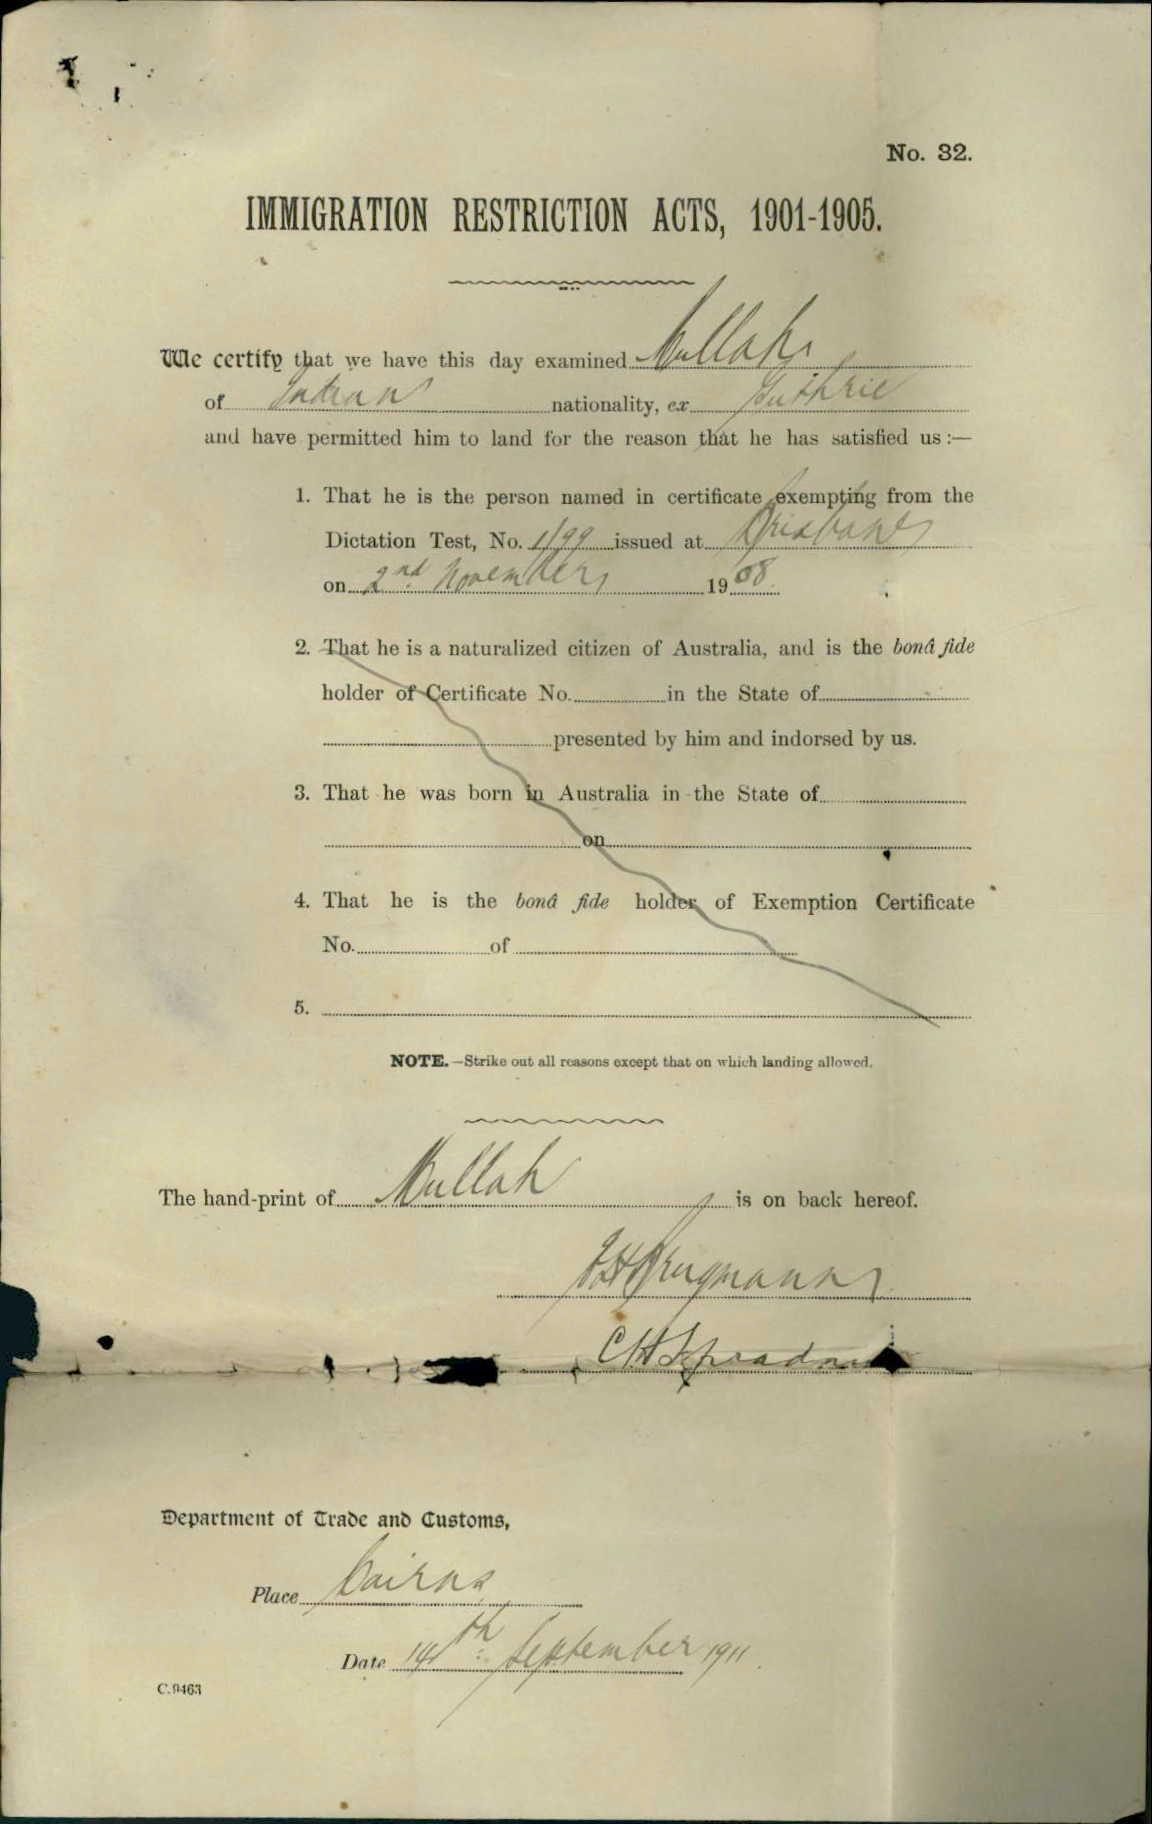 No. 32.
IMMIGRATION RESTRICTION ACTS, 1901-1905.
We certify that we have this day examined Mullah
of Indian nationality, ex Guthrie
and have permitted him to land for the reason that he has satisfied us :—
1. That he is the person named in certificate exempting from the
Dictation Test, No. 1/99 issued at Brisbane
on 2nd November 1908
2. That he is a naturalized citizen of Australia, and is the bonâ fide
holder of Certificate No. in the State of
presented by him and indorsed by us.
3. That he was born in Australia in the State of
on
4. That he is the bonâ fide holder of Exemption Certificate
No. of
5.
NOTE.—Strike out all reasons except that on which landing allowed.
The hand-print of Mullah is on back hereof.
C H
Department of Trade and Customs,
Place Cairns
Date 14th September 1911.
C.9463